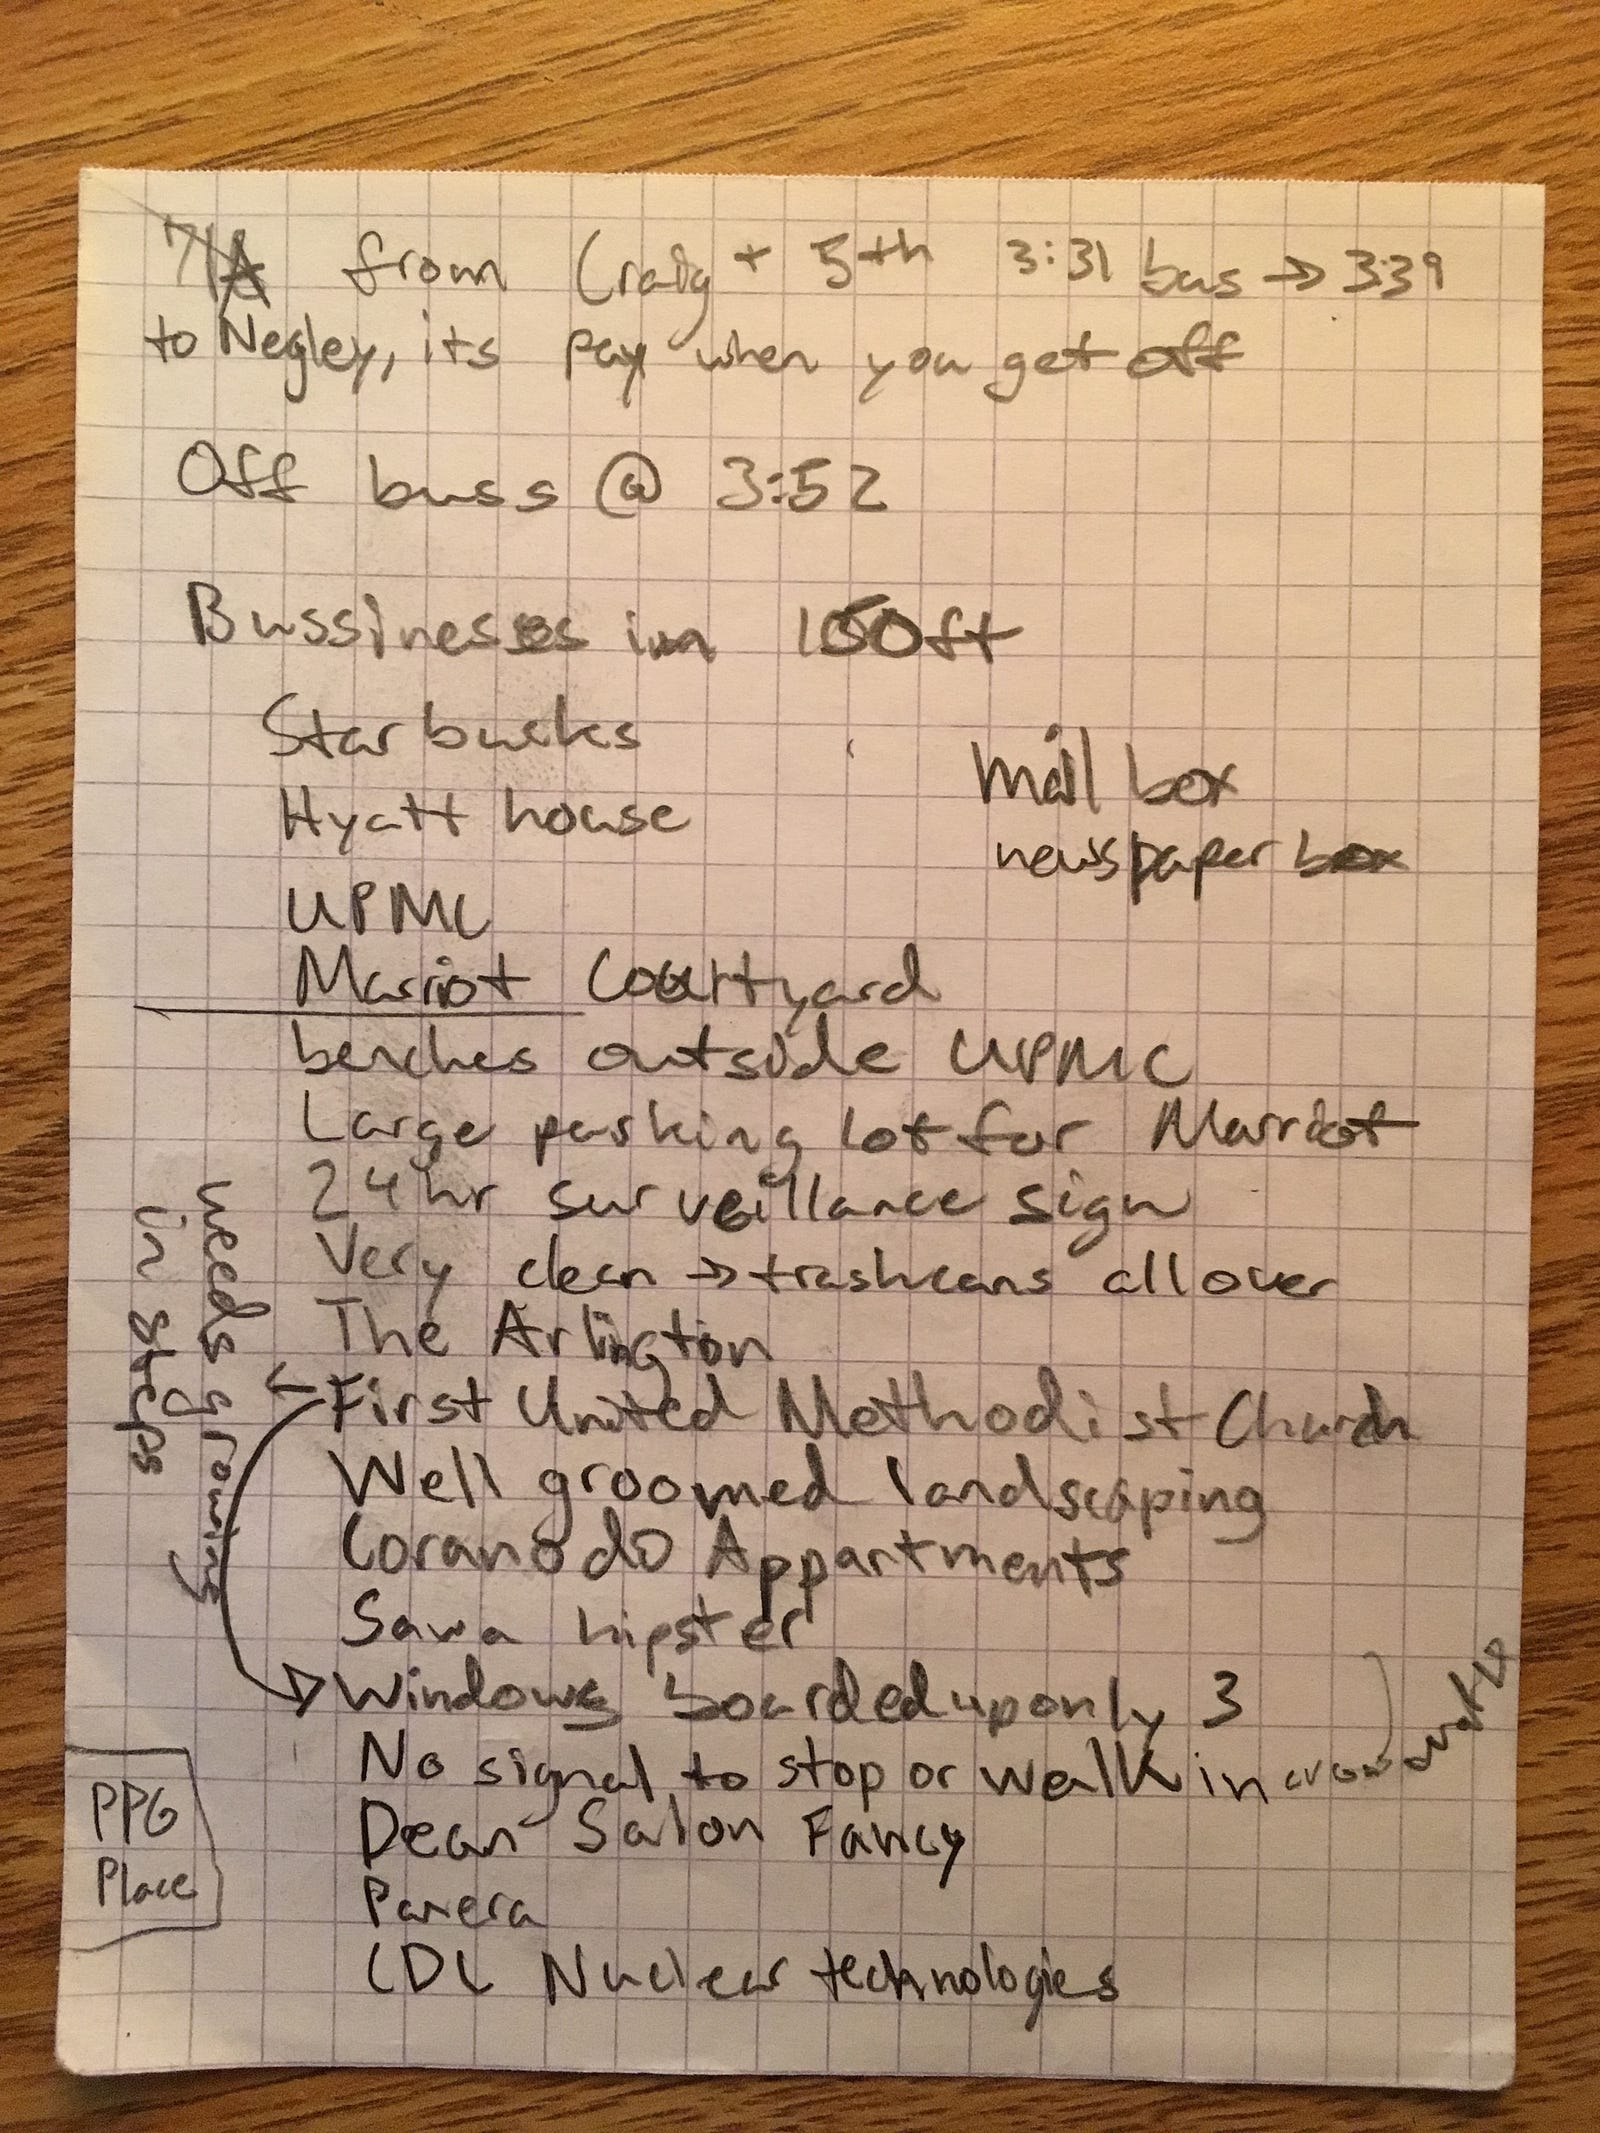 71A from Craig + 5th 3:31 bus → 3:39
to Negley, its pay when you get off
Off buss @ 3:52
Bussinesses in 150ft
Starbucks
Hyatt house
UPMC
Marriot Courtyard
mail box
newspaper box
benches outside UPMC
Large parking lot for Marriot
24hr surveillance sign
Very clean → trashcans all over
The Arlington
← First United Methodist Church
weeds growing
in steps
Well groomed landscaping
Coranodo Appartments
Sawa hipster
Windows boarded up only 3
No signal to stop or walk in
Dean Salon Fancy
Panera
CDL Nuclear technologies
PPG
Place